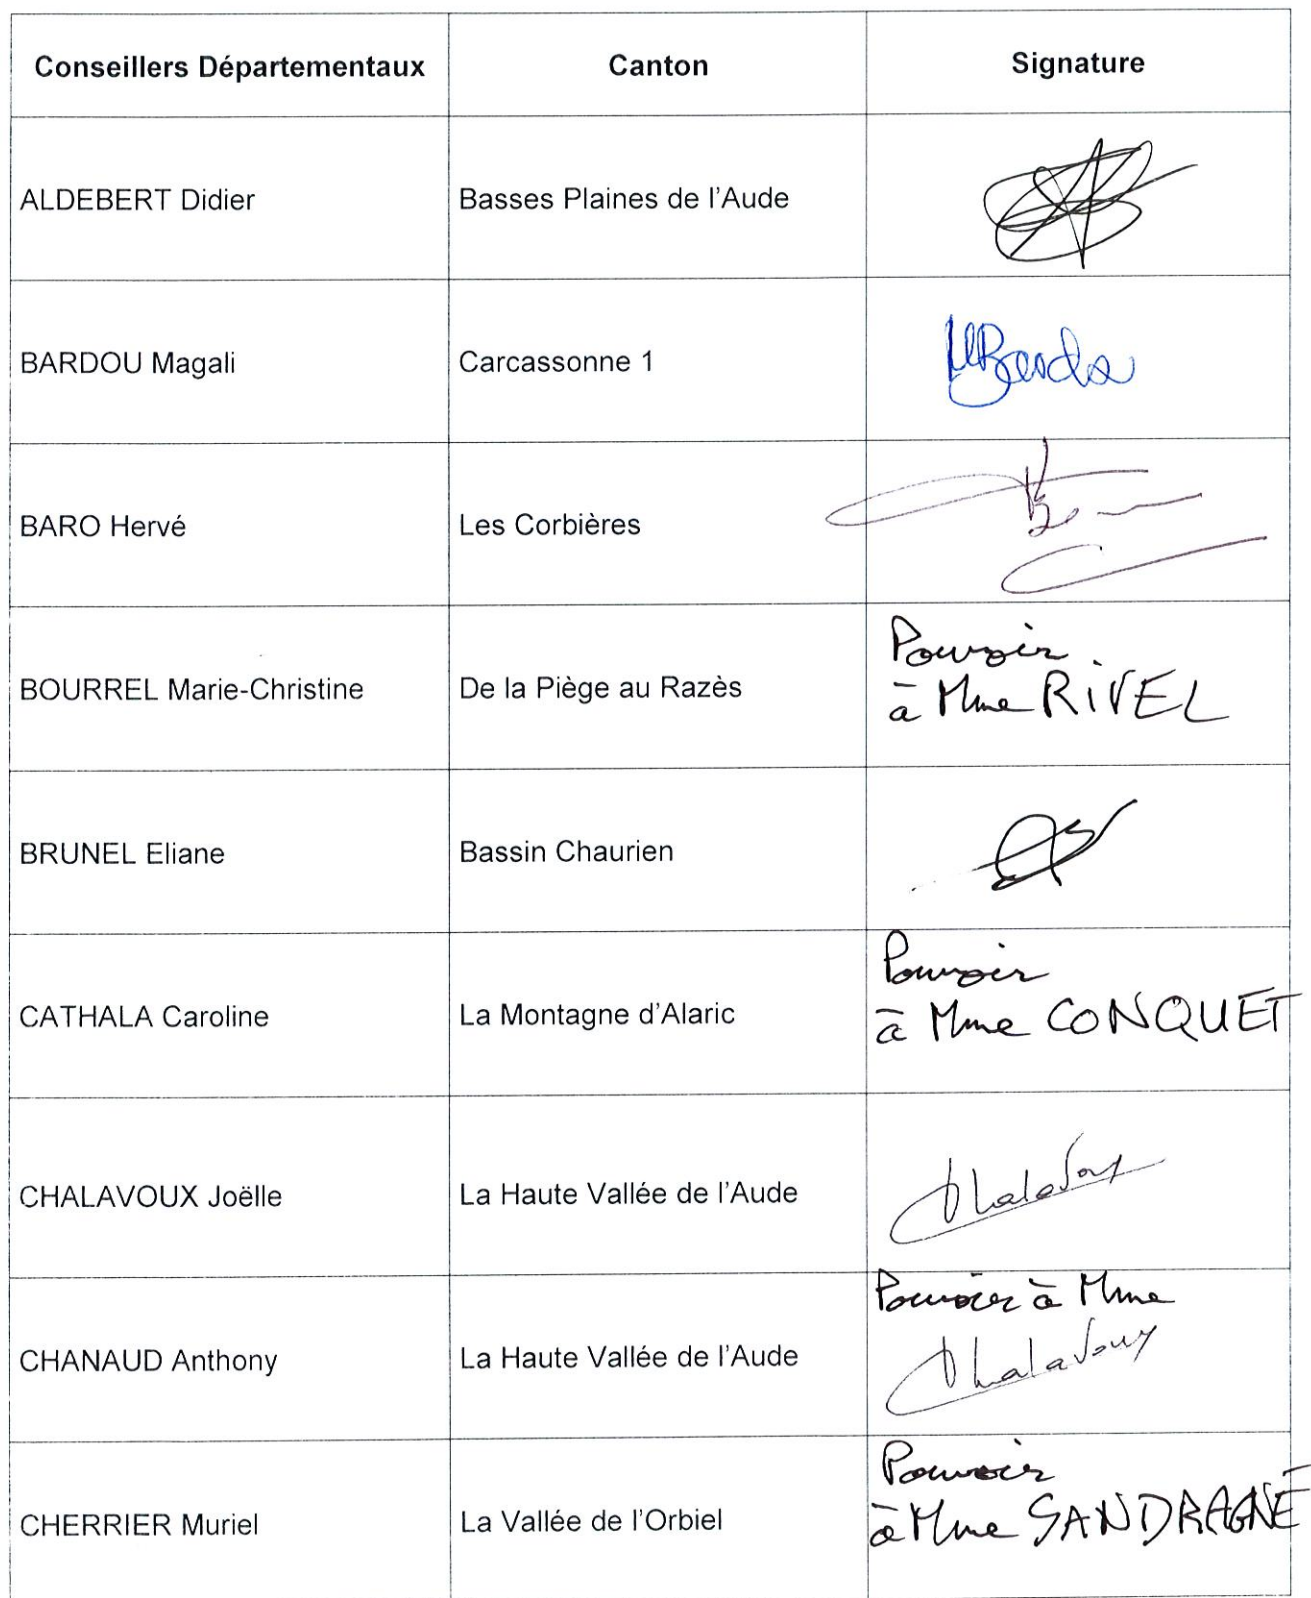 Conseillers Départementaux Canton Signature
ALDEBERT Didier Basses Plaines de l'Aude
BARDOU Magali Carcassonne 1
BARO Hervé Les Corbières
Pouvoir
BOURREL Marie-Christine De la Piège au Razès à Mme RIVEL
BRUNEL Eliane Bassin Chaurien
Pouvoir
CATHALA Caroline La Montagne d'Alaric à Mme CONQUET
CHALAVOUX Joëlle La Haute Vallée de l'Aude Chalavoux
Pouvoir à Mme
CHANAUD Anthony La Haute Vallée de l'Aude Chalavoux
Pouvoir
CHERRIER Muriel La Vallée de l'Orbiel à Mme SANDRAGNÉ